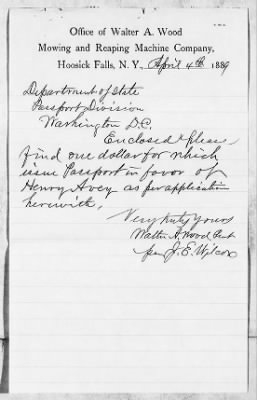 Office of Walter A. Wood
Mowing and Reaping Machine Company,
Hoosick Falls, N. Y. April 4th 1889
Department of State
Passport Division
Washington D.C.
Enclosed please
find one dollar for which
issue Passport in favor of
Henry Avey as per application
herewith.
Very truly yours
Walter A. Wood Pret
per J. E. Wilcox